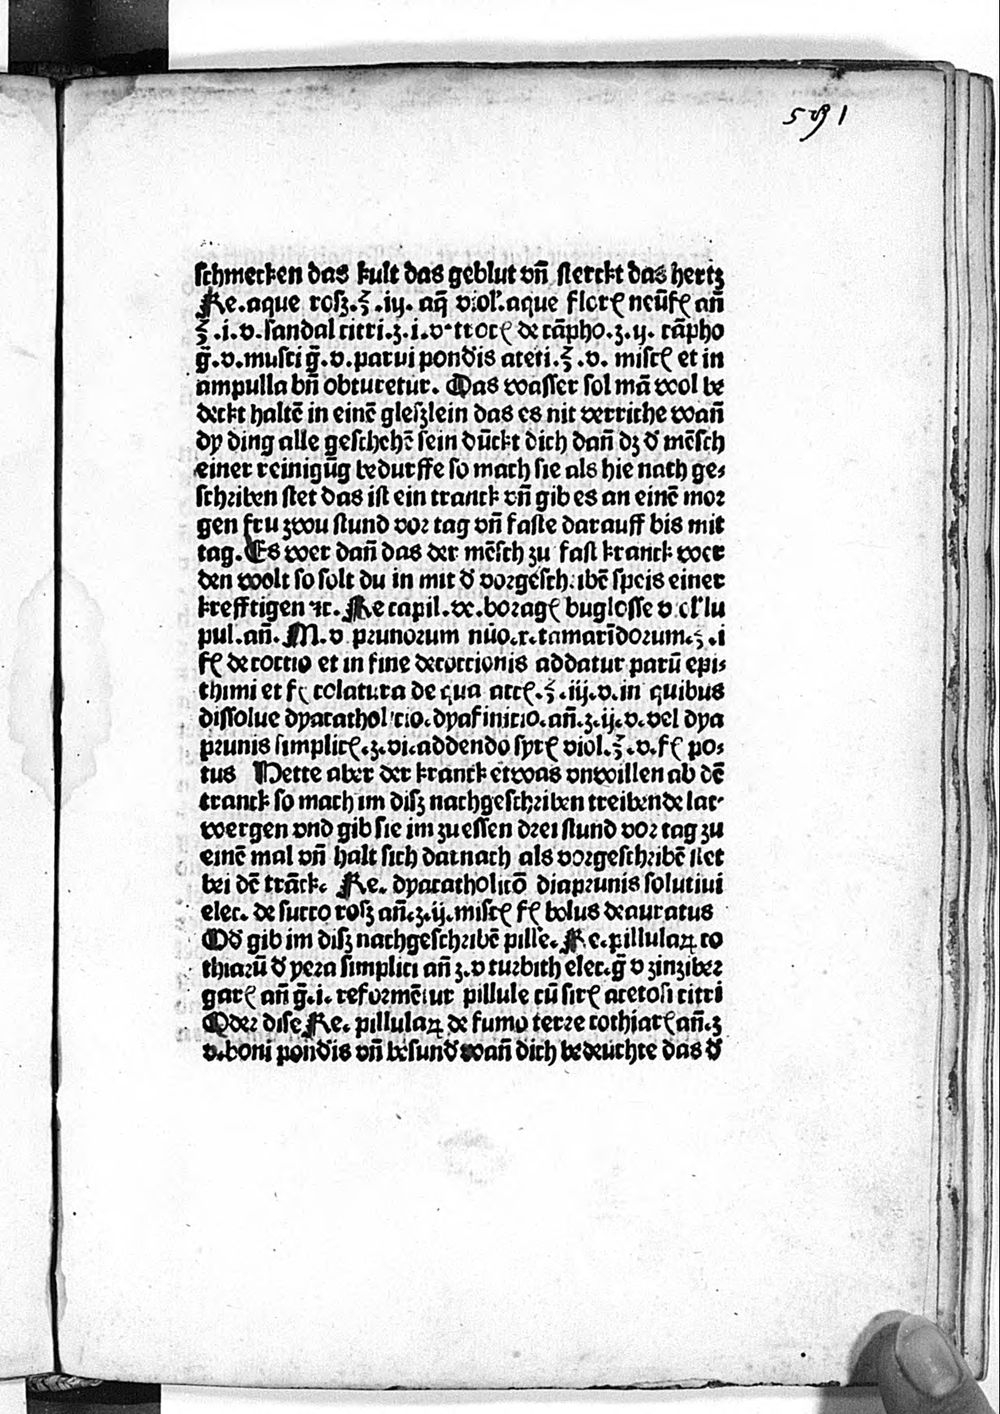 591
schmecken das kult das geblut vñ sterckt das hertz
Re.aque rosz.ʒ.iij. aq̄ viol'.aque florꝭ neūfꝭ añ
ʒ.i.v.sandal citri.ʒ.i.v.trocꝭ de cāpho.ʒ.ij. cāpho
g̃.v.musci g̃.v.parui pondis aceti.ʒ.v. miscꝭ et in
ampulla bñ obturetur. Das wasser sol mā wol be
deckt haltē in einē gleszlein das es nit verriche wañ
dy ding alle geschehē sein dūckt dich dañ dz d' mēsch
einer reinigūg bedurffe so mach sie als hie nach ge⸗
schriben stet das ist ein tranck vñ gib es an einē mor
gen fru zwu stund vor tag vñ faste darauff bis mit
tag. Es wer dañ das der mēsch zu fast kranck wer
den wolt so solt du in mit d' vorgeschribē speis einer
krefftigen ⁊c. Re capil.ve.boragꝭ buglosse v ol'lu
pul.añ. M.v prunorum nūo.x.tamarīdorum.ʒ.i
fꝭ decoctio et in fine decoctionis addatur parū epi⸗
thimi et fꝭ colatura de qua accꝭ.ʒ.iij.v.in quibus
dissolue dyacatholicio.dyafinicio.añ.ʒ.ij.v.vel dya
prunis simplicꝭ.ʒ.vi.addendo syrꝭ viol.ʒ.v.fꝭ po⸗
tus Hette aber der kranck etwas vnwillen ab dē
tranck so mach im disz nachgeschriben treibende lat⸗
wergen vnd gib sie im zu essen drei stund vor tag zu
einē mal vñ halt sich darnach als vorgeschribē stet
bei dē trāck. Re. dyacatholicō diaprunis solutiui
elec. de succo rosz añ.ʒ.ij.miscꝭ fꝭ bolus deauratus
Od' gib im disz nachgeschribē pille. Re.pillulaꝝ co
thiarū d' yera simplici añ ʒ.v turbith elec.g̃ v zinziber
garꝭ añ g̃.i. reformētur pillule cū sirꝭ acetosi citri
Oder dise Re. pillulaꝝ de fumo terre cothiarꝭ añ.ʒ
v.boni pondis vñ besund' wañ dich bedeuchte das d'